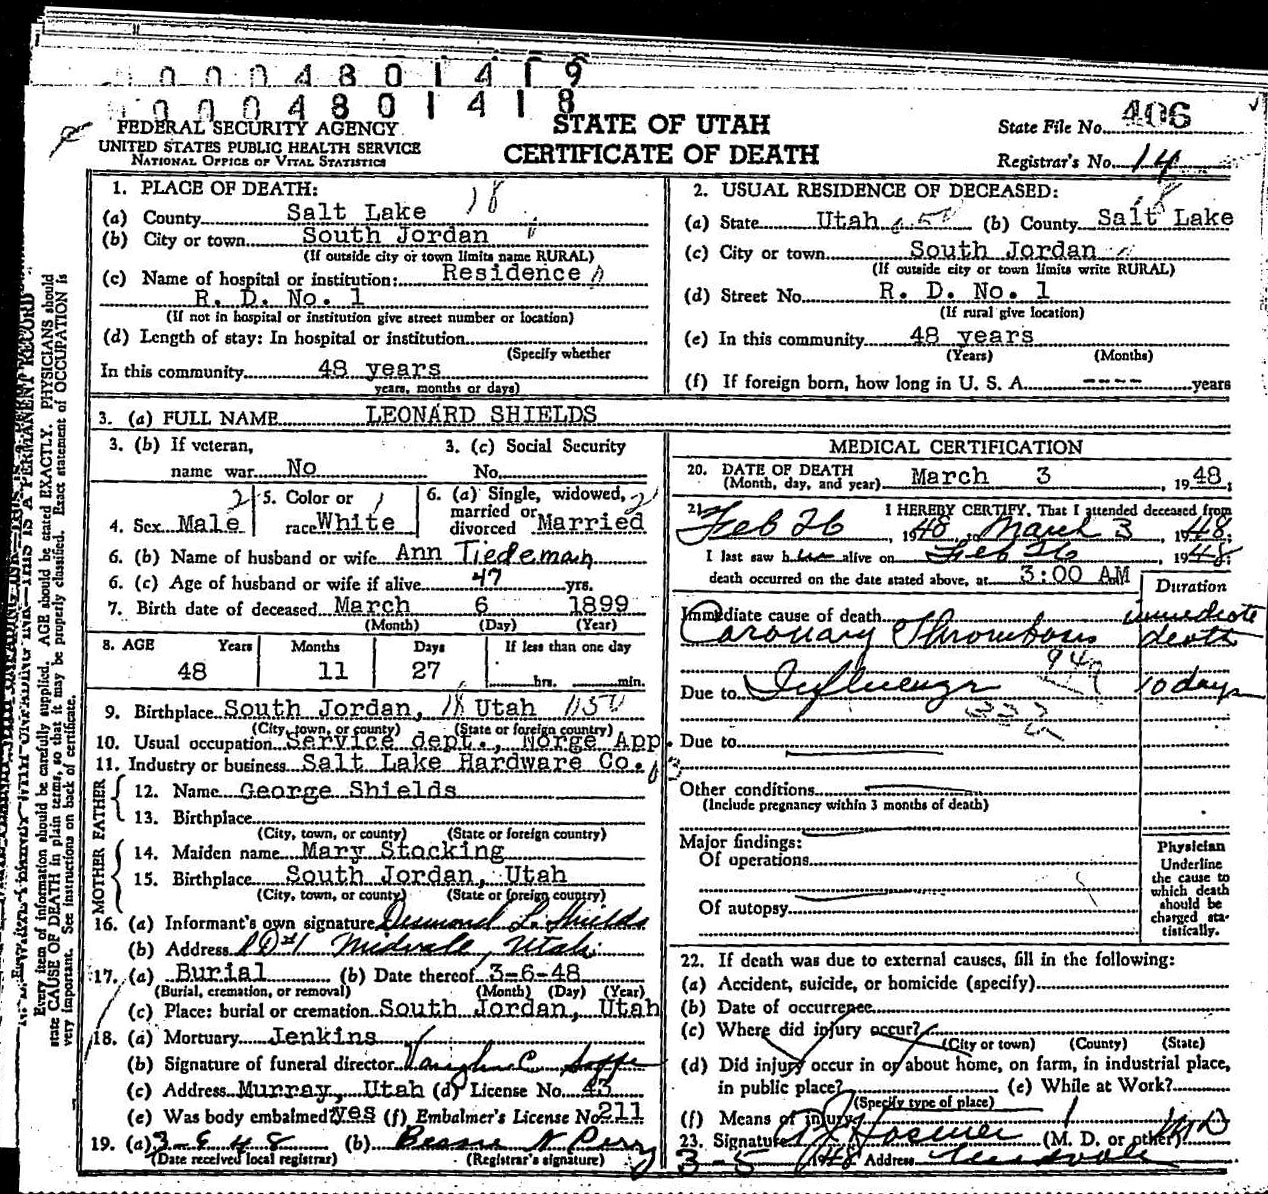 0 0 0 4 8 0 1 4 1 9
0 0 0 4 8 0 1 4 1 8
FEDERAL SECURITY AGENCY
UNITED STATES PUBLIC HEALTH SERVICE
NATIONAL OFFICE OF VITAL STATISTICS
STATE OF UTAH
CERTIFICATE OF DEATH
State File No. 406
Registrar's No. 14
1. PLACE OF DEATH: 18
(a) County Salt Lake
(b) City or town South Jordan
(If outside city or town limits name RURAL)
(c) Name of hospital or institution: Residence
R. D. No. 1
(If not in hospital or institution give street number or location)
(d) Length of stay: In hospital or institution
(Specify whether
In this community 48 years
years, months or days)
2. USUAL RESIDENCE OF DECEASED:
(a) State Utah (b) County Salt Lake
(c) City or town South Jordan
(If outside city or town limits write RURAL)
(d) Street No. R. D. No. 1
(If rural give location)
(e) In this community 48 years
(Years) (Months)
(f) If foreign born, how long in U. S. A. ---- years
3. (a) FULL NAME LEONARD SHIELDS
3. (b) If veteran,
name war No
3. (c) Social Security
No.
4. Sex Male 2
5. Color or
race White 1
6. (a) Single, widowed,
married or
divorced Married
6. (b) Name of husband or wife Ann Tiedeman
6. (c) Age of husband or wife if alive 47 yrs.
7. Birth date of deceased March 6 1899
(Month) (Day) (Year)
8. AGE Years Months Days If less than one day
48 11 27 hrs. min.
9. Birthplace South Jordan, 18 Utah
(City, town, or county) (State or foreign country)
10. Usual occupation Service dept., Norge App.
11. Industry or business Salt Lake Hardware Co.
FATHER
12. Name George Shields
13. Birthplace
(City, town, or county) (State or foreign country)
MOTHER
14. Maiden name Mary Stocking
15. Birthplace South Jordan, Utah
(City, town, or county) (State or foreign country)
16. (a) Informant's own signature Desmond L. Shields
(b) Address RD #1 Midvale, Utah
17. (a) Burial (b) Date thereof 3-6-48
(Burial, cremation, or removal) (Month) (Day) (Year)
(c) Place: burial or cremation South Jordan, Utah
18. (a) Mortuary Jenkins
(b) Signature of funeral director Vaughn C.
(c) Address Murray, Utah (d) License No. 43
(e) Was body embalmed? yes (f) Embalmer's License No. 211
19. (a) 3-6 48 (b) Bessie N Perry
(Date received local registrar) (Registrar's signature)
MEDICAL CERTIFICATION
20. DATE OF DEATH
(Month, day, and year) March 3, 1948;
21. I HEREBY CERTIFY, That I attended deceased from
Feb 26, 1948, to March 3, 1948;
I last saw him alive on Feb 26, 1948;
death occurred on the date stated above, at 3:00 AM
Duration
Immediate cause of death immediate
Coronary Thrombosis death
94
Due to Influenza 10 days
332
Due to
Other conditions
(Include pregnancy within 3 months of death)
Major findings:
Of operations
Of autopsy
Physician
Underline
the cause to
which death
should be
charged sta-
tistically.
22. If death was due to external causes, fill in the following:
(a) Accident, suicide, or homicide (specify)
(b) Date of occurrence
(c) Where did injury occur?
(City or town) (County) (State)
(d) Did injury occur in or about home, on farm, in industrial place,
in public place? (e) While at Work?
(Specify type of place)
(f) Means of injury
23. Signature (M. D. or other) MD
3-5 1948 Address Midvale
Every item of information should be carefully supplied. AGE should be stated EXACTLY. PHYSICIANS should
state CAUSE OF DEATH in plain terms, so that it may be properly classified. Exact statement of OCCUPATION is
very important. See instructions on back of certificate.